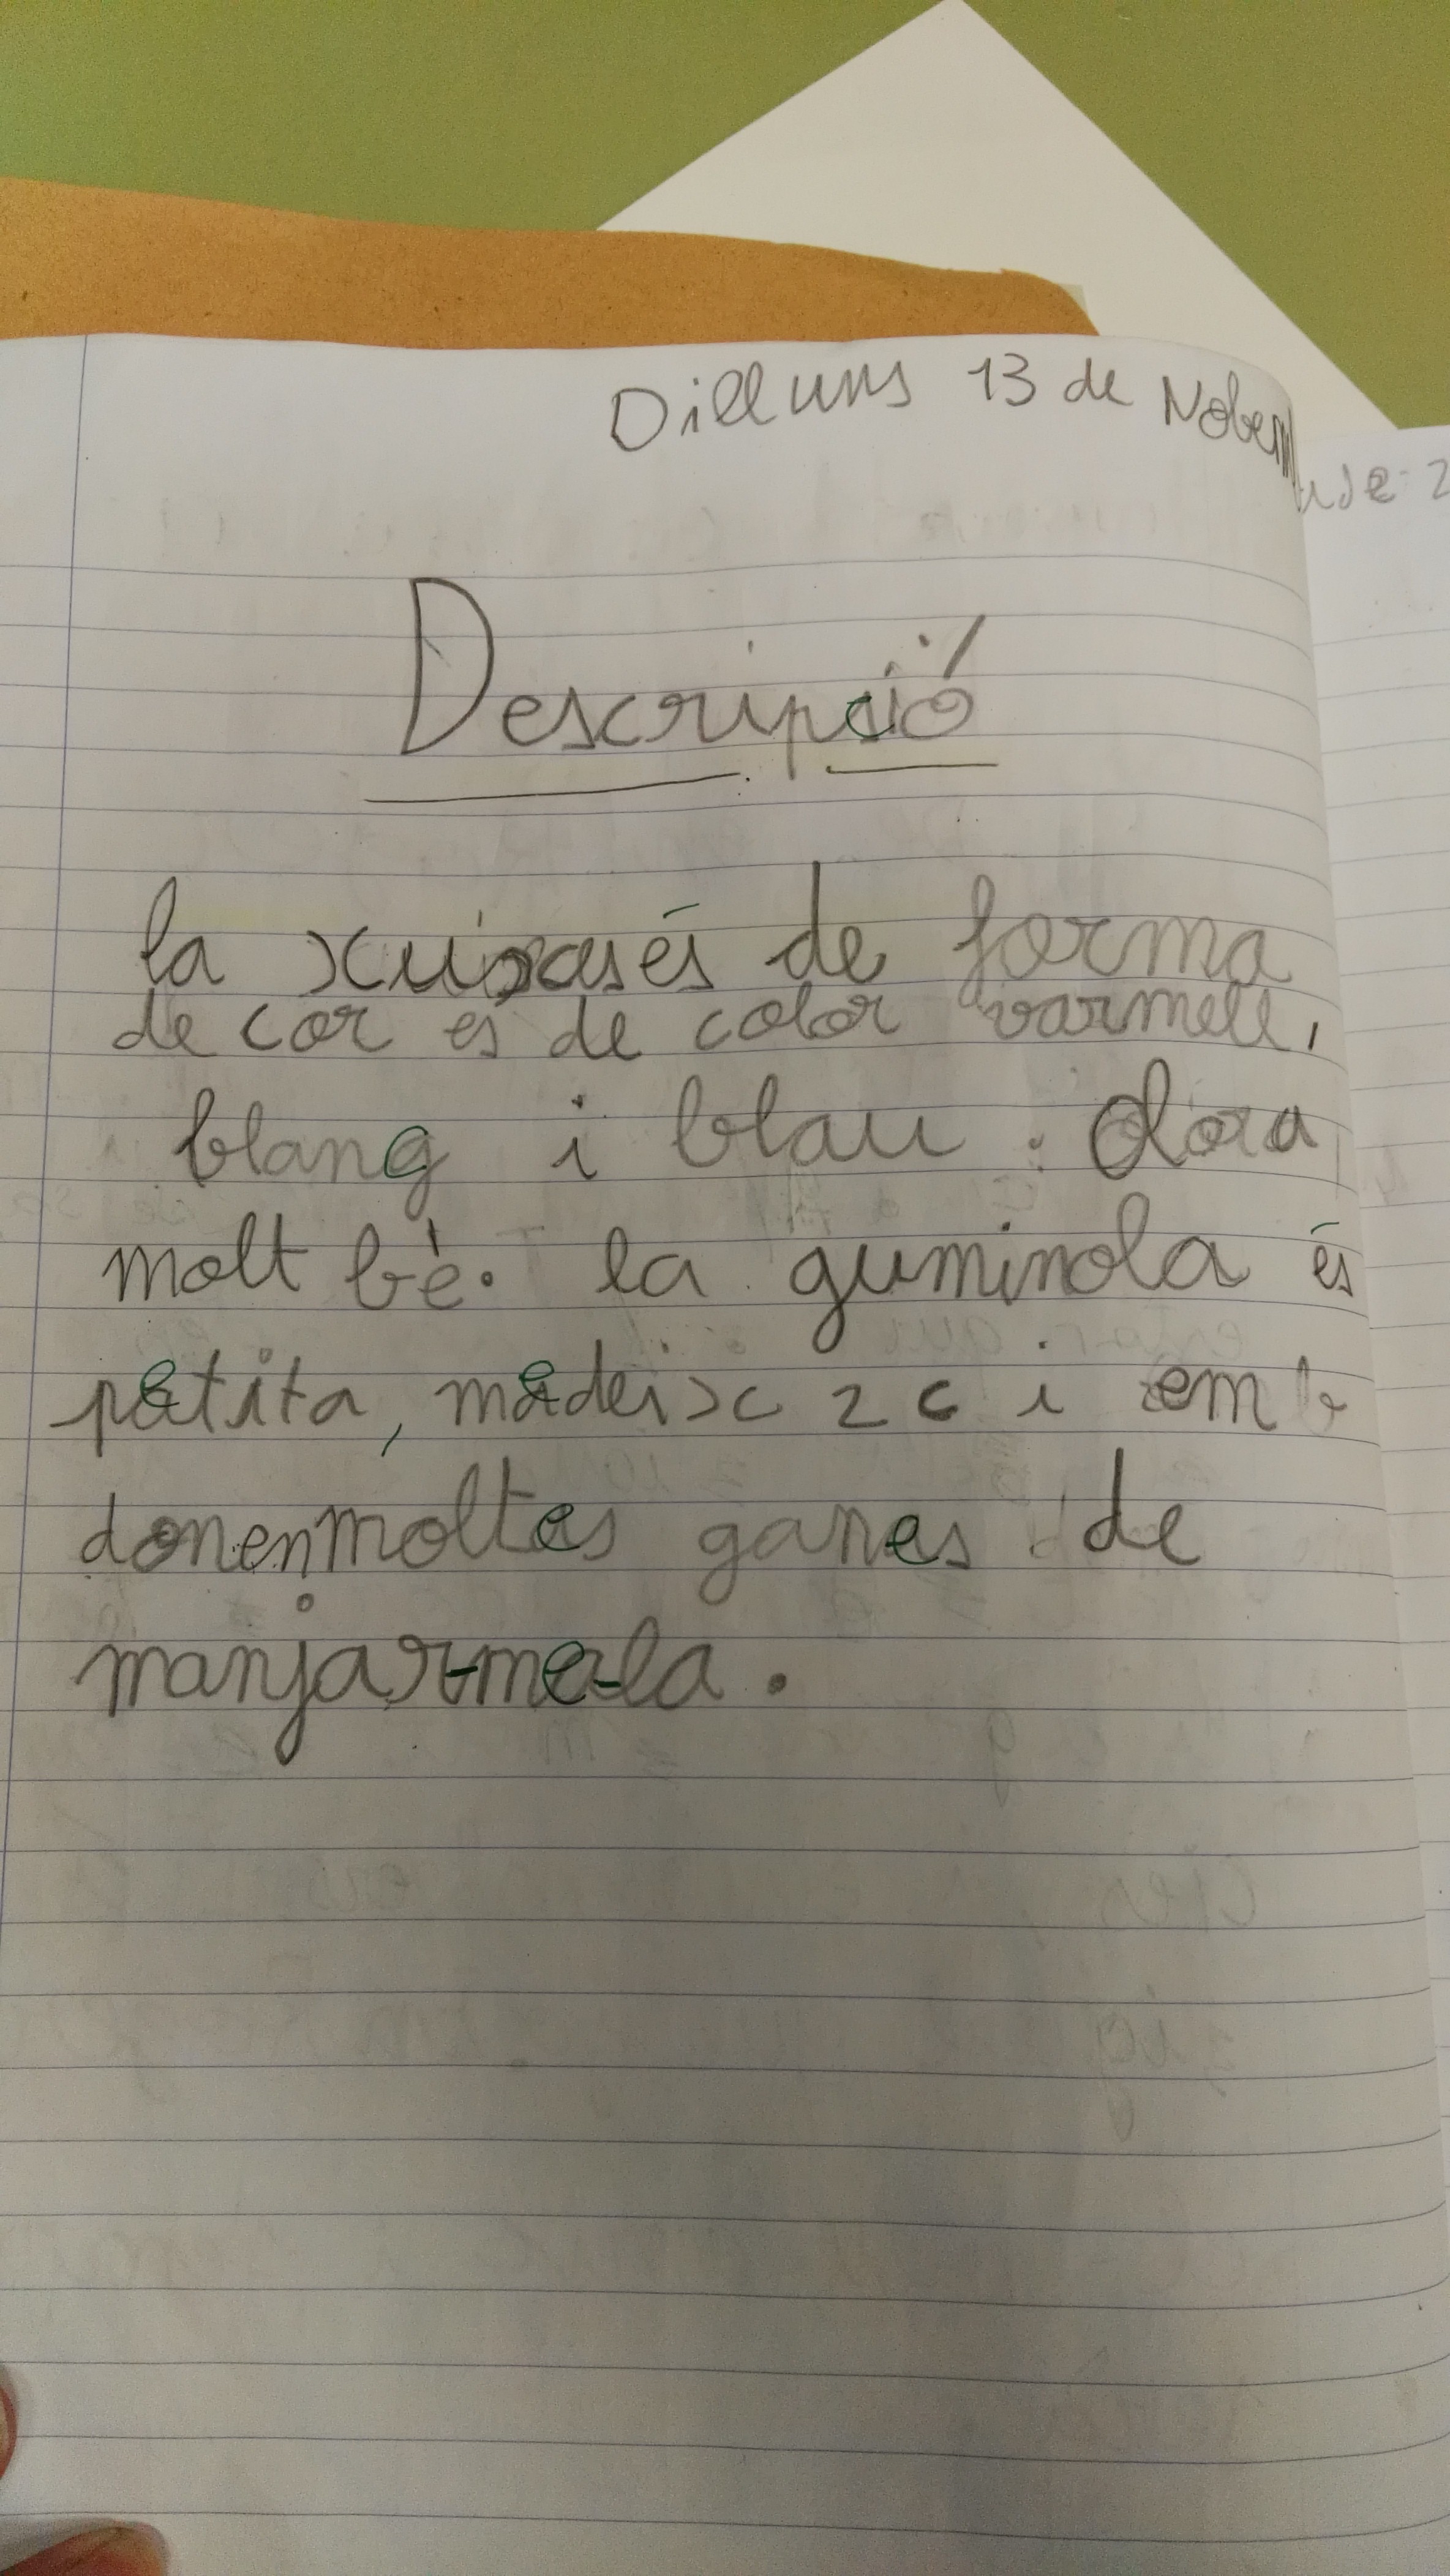 Dilluns 13 de Nobem
de 2
Descripció
la xuxasés de forma
de cor es de color varmell,
blang i blau. Olora
molt bé. la guminola és
petita, medeix 2 c i em
donenmoltes ganes de
manjar-me-la.